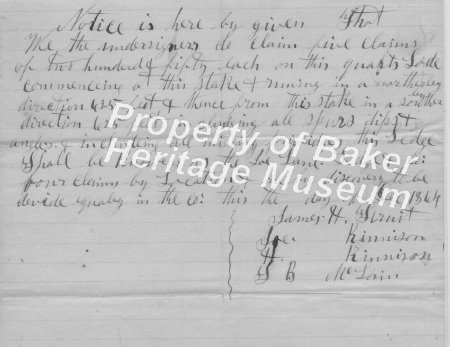 Notice is here by given That
We, the undersigners do Claim five Claims
of two hundred & fifty each on this quartz Lode
commencing at this stake & runing in a northerley
direction 625 feet & thence from this stake in a souther
direction 625 including all spurs dips &
angles & including all this Ledge
Shall be
four claims by discovery to be
devide equaley in the co: this the day 1864
James H. Struit
Joe. Kinnison
H. Kinnison
S B McLain
Property of Baker
Heritage Museum